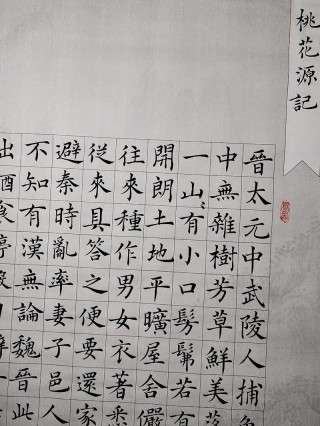 桃花源記
晉太元中武陵人捕
中無雜樹芳草鮮美落
一山々有小口髣髴若有
開朗土地平曠屋舍儼
往來種作男女衣著悉
從來具答之便要還家
避秦時亂率妻子邑人
不知有漢無論魏晉此
出酒食停